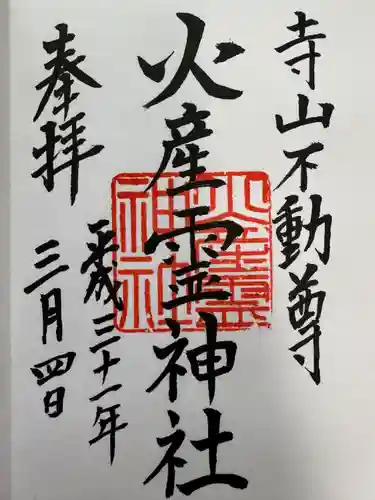 寺山不動尊
火産霊神社
奉拝
平成三十一年
三月四日
火産霊
神社